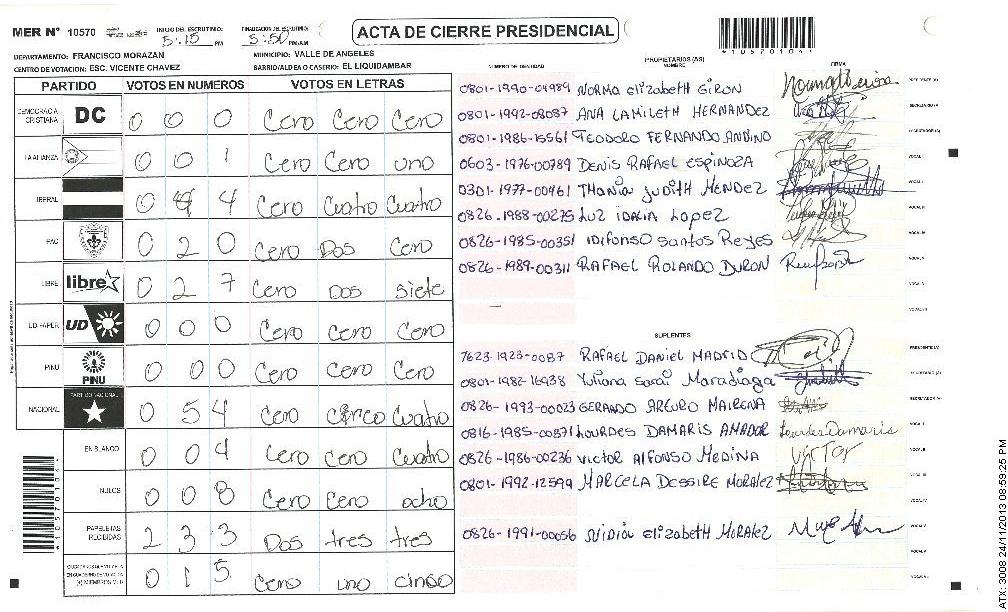 MER N° 10570 INICIO DEL ESCRUTINIO: 5:15 PM FINALIZACION DEL ESCRUTINIO: 5:50 PM/AM
ACTA DE CIERRE PRESIDENCIAL
DEPARTAMENTO: FRANCISCO MORAZAN MUNICIPIO: VALLE DE ANGELES
CENTRO DE VOTACION: ESC. VICENTE CHAVEZ BARRIO/ALDEA O CASERIO: EL LIQUIDAMBAR
PARTIDO VOTOS EN NUMEROS VOTOS EN LETRAS
DEMOCRACIA CRISTIANA DC 0 0 0 Cero Cero Cero
LA ALIANZA 0 0 1 Cero Cero uno
LIBERAL 0 4 4 Cero Cuatro Cuatro
PAC 0 2 0 Cero Dos Cero
LIBRE libre 0 2 7 Cero Dos siete
UD-FAPER UD 0 0 0 Cero Cero Cero
PINU PINU 0 0 0 Cero Cero Cero
NACIONAL PARTIDO NACIONAL 0 5 4 Cero Cinco Cuatro
EN BLANCO 0 0 4 Cero Cero Cuatro
NULOS 0 0 8 Cero Cero ocho
PAPELETAS RECIBIDAS 2 3 3 Dos tres tres
0 1 5 Cero uno cinco
NUMERO DE IDENTIDAD PROPIETARIOS (AS) NOMBRE FIRMA
0801-1990-04989 NORMA Elizabeth GIRON
0801-1992-08087 ANA LAMILETH HERNANDEZ
0801-1986-15561 TEODORO FERNANDO ANDINO
0603-1976-00789 DENIS RAFAEL ESPINOZA
0301-1977-00461 THANIA JUDITH MENDEZ
0826-1988-00275 LUZ IDALIA LOPEZ
0826-1985-00351 IDIFONSO SANTOS REYES
0826-1989-00311 RAFAEL ROLANDO DURON
SUPLENTES
7623-1923-0087 RAFAEL DANIEL MADRID
0801-1982-16938 Yuliana Sarai Maradiaga
0826-1993-00023 GERARDO ARTURO MAIRENA
0816-1985-00371 LOURDES DAMARIS AMADOR Lourdes Damaris
0826-1986-00236 VICTOR ALFONSO MEDINA VICTOR
0801-1992-12599 MARCELA DESSIRE MORALEZ
0826-1991-00056 NIDIA Elizabeth MORALEZ
ATX: 3008 24/11/2013 08:59:25 PM